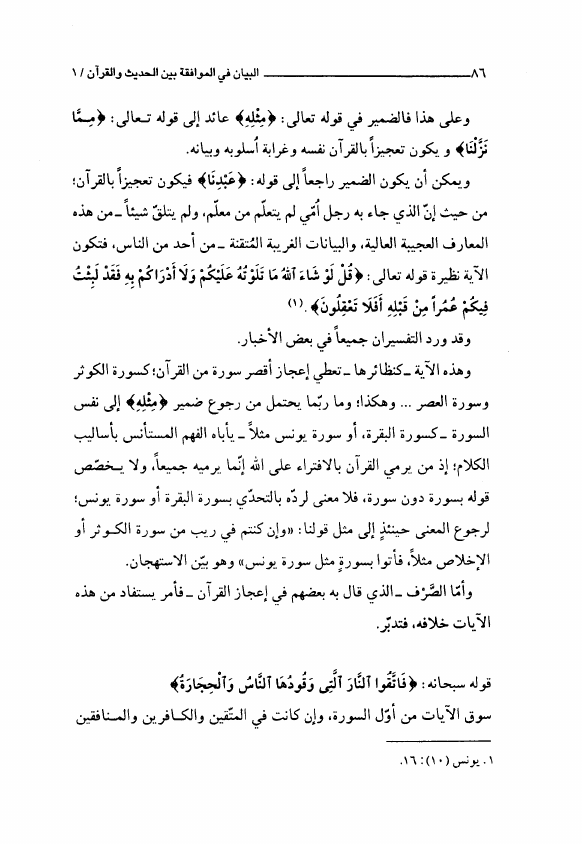 ٨٦ ــــــــــــــــــــــــــــ البيان في الموافقة بين الحديث والقرآن / ١
وعلى هذا فالضمير في قوله تعالى: ﴿مِثْلِهِ﴾ عائد إلى قوله تـعالى: ﴿مِـمَّا
نَزَّلْنَا﴾ و يكون تعجيزاً بالقرآن نفسه وغرابة أُسلوبه وبيانه.
ويمكن أن يكون الضمير راجعاً إلى قوله: ﴿عَبْدِنَا﴾ فيكون تعجيزاً بالقرآن؛
من حيث إنّ الذي جاء به رجل أُمّي لم يتعلّم من معلّم، ولم يتلقّ شيئاً ـ من هذه
المعارف العجيبة العالية، والبيانات الغريبة المُتقنة ـ من أحد من الناس، فتكون
الآية نظيرة قوله تعالى: ﴿قُلْ لَوْ شَاءَ ٱللهُ مَا تَلَوْتُهُ عَلَيْكُمْ وَلَا أَدْرَاكُمْ بِهِ فَقَدْ لَبِثْتُ
فِيكُمْ عُمُراً مِنْ قَبْلِهِ أَفَلَا تَعْقِلُونَ﴾.(١)
وقد ورد التفسيران جميعاً في بعض الأخبار.
وهذه الآية ـ كنظائرها ـ تعطي إعجاز أقصر سورة من القرآن؛ كسورة الكوثر
وسورة العصر ... وهكذا؛ وما ربّما يحتمل من رجوع ضمير ﴿مِثْلِهِ﴾ إلى نفس
السورة ـ كسورة البقرة، أو سورة يونس مثلاً ـ يأباه الفهم المستأنس بأساليب
الكلام؛ إذ من يرمي القرآن بالافتراء على الله إنّما يرميه جميعاً، ولا يـخصّص
قوله بسورة دون سورة، فلا معنى لردّه بالتحدّي بسورة البقرة أو سورة يونس؛
لرجوع المعنى حينئذٍ إلى مثل قولنا: «وإن كنتم في ريب من سورة الكـوثر أو
الإخلاص مثلاً، فأتوا بسورةٍ مثل سورة يونس» وهو بيّن الاستهجان.
وأمّا الصَّرْف ـ الذي قال به بعضهم في إعجاز القرآن ـ فأمر يستفاد من هذه
الآيات خلافه، فتدبّر.
قوله سبحانه: ﴿فَاتَّقُوا ٱلنَّارَ ٱلَّتِى وَقُودُهَا ٱلنَّاسُ وَٱلْحِجَارَةُ﴾
سوق الآيات من أوّل السورة، وإن كانت في المتّقين والكـافرين والمـنافقين
١. يونس (١٠): ١٦.